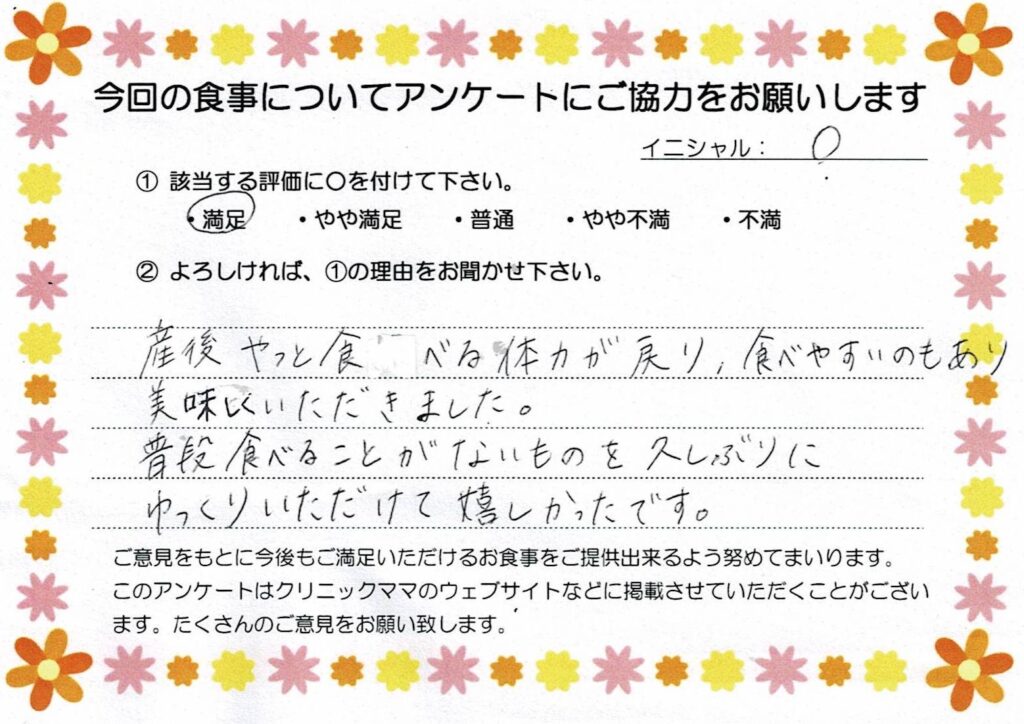 今回の食事についてアンケートにご協力をお願いします
イニシャル： O
① 該当する評価に〇を付けて下さい。
・満足 ・やや満足 ・普通 ・やや不満 ・不満
② よろしければ、①の理由をお聞かせ下さい。
産後 やっと食べる体力が戻り、食べやすいのもあり
美味しくいただきました。
普段食べることがないものを久しぶりに
ゆっくりいただけて嬉しかったです。
ご意見をもとに今後もご満足いただけるお食事をご提供出来るよう努めてまいります。
このアンケートはクリニックママのウェブサイトなどに掲載させていただくことがござい
ます。たくさんのご意見をお願い致します。